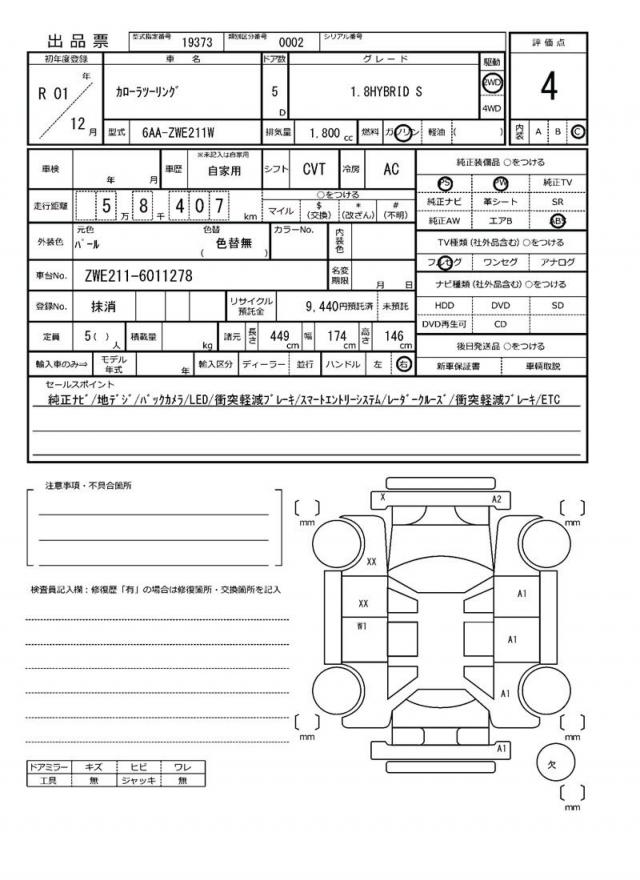 出品票 型式指定番号 19373 類別区分番号 0002 シリアル番号
評価点
4
初年度登録 車名 ドア数 グレード 駆動
R 01 年 12 月 カローラツーリング 5 D 1.8HYBRID S 2WD
4WD
型式 6AA-ZWE211W 排気量 1.800 cc 燃料 ガソリン 軽油 ( ) 内装 A B C
車検 年 月 車歴 ※未記入は自家用 自家用 シフト CVT 冷房 AC
走行距離 5 万 8 千 4 0 7 km ○をつける
マイル $ (交換) * (改ざん) # (不明)
外装色 元色 パール 色替 ( 色替無 ) カラーNo. 内装色
車台No. ZWE211-6011278 名変期限 月 日
登録No. 抹消 リサイクル預託金 9,440円預託済 未預託
定員 5( ) 人 積載量 kg 諸元 長さ 449 cm 幅 174 cm 高さ 146 cm
輸入車のみ⇒ モデル年式 年 輸入区分 ディーラー 並行 ハンドル 左 右
純正装備品 ○をつける
PS PW 純正TV
純正ナビ 革シート SR
純正AW エアB ABS
TV種類 (社外品含む) ○をつける
フルセグ ワンセグ アナログ
ナビ種類 (社外品含む) ○をつける
HDD DVD SD
DVD再生可 CD
後日発送品 ○をつける
新車保証書 車輌取説
セールスポイント
純正ナビ/地デジ/バックカメラ/LED/衝突軽減ブレーキ/スマートエントリーシステム/レーダークルーズ/衝突軽減ブレーキ/ETC
注意事項・不具合箇所
検査員記入欄：修復歴「有」の場合は修復箇所・交換箇所を記入
X A2
mm mm
XX
XX A1
W1 A1
A1
mm mm
A1
欠
mm
ドアミラー キズ ヒビ ワレ
工具 無 ジャッキ 無